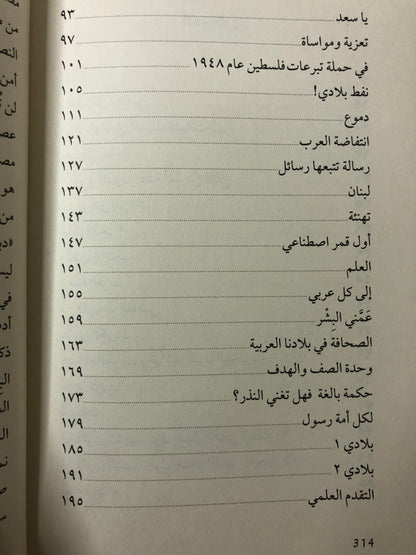 يا سعد ٩٣
تعزية ومواساة ٩٧
في حملة تبرعات فلسطين عام ١٩٤٨ ١٠١
نفط بلادي! ١٠٥
دموع ١١١
انتفاضة العرب ١٢١
رسالة تتبعها رسائل ١٢٧
لبنان ١٣٧
تهنئة ١٤٣
أول قمر اصطناعي ١٤٧
العلم ١٥١
إلى كل عربي ١٥٥
عَمَّني البِشْر ١٥٩
الصحافة في بلادنا العربية ١٦٣
وحدة الصف والهدف ١٦٩
حكمة بالغة فهل تغني النذر؟ ١٧٣
لكل أمة رسول ١٧٩
بلادي ١ ١٨٥
بلادي ٢ ١٩١
التقدم العلمي ١٩٥
314